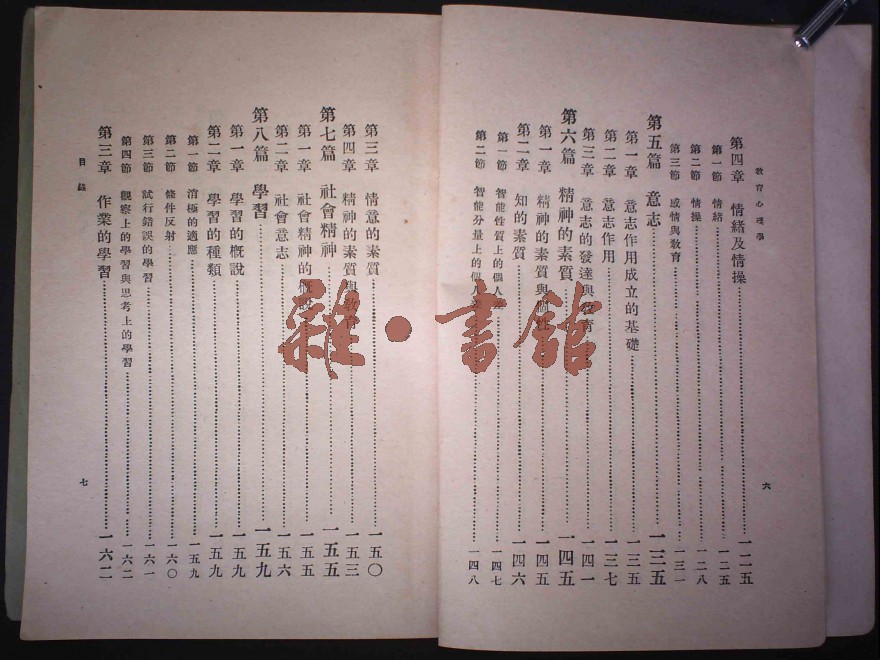 教育心理學
第四章 情緒及情操 一二五
第一節 情緒 一二五
第二節 情操 一二八
第三節 感情與教育 一三一
第五篇 意志 一三五
第一章 意志作用成立的基礎 一三五
第二章 意志作用 一三七
第三章 意志的發達與教育 一四一
第六篇 精神的素質 一四五
第一章 精神的素質與個性 一四五
第二章 知的素質 一四六
第一節 智能性質上的個人差 一四七
第二節 智能分量上的個人差 一四八
六
第三章 情意的素質 一五〇
第四章 精神的素質與教育 一五三
第七篇 社會精神 一五五
第一章 社會精神的概說 一五五
第二章 社會意志 一五六
第八篇 學習 一五九
第一章 學習的概說 一五九
第二章 學習的種類 一五九
第一節 消極的適應 一五九
第二節 條件反射 一六〇
第三節 試行錯誤的學習 一六一
第四節 觀察上的學習與思考上的學習 一六二
第三章 作業的學習 一六二
目錄
七
雜·書館